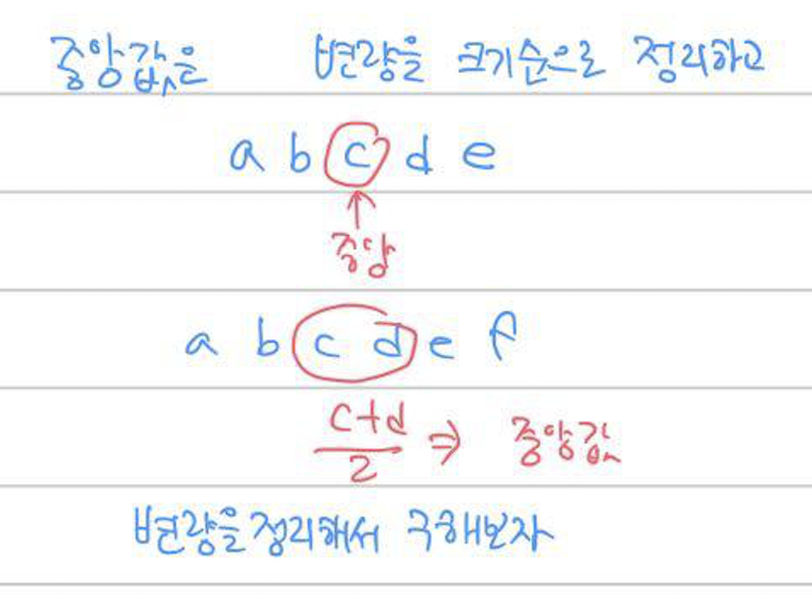 중앙값은 변량을 크기순으로 정리하고
a b c d e
↑
중앙
a b c d e f
c+d/2 ⇒ 중앙값
변량을 정리해서 구해보자